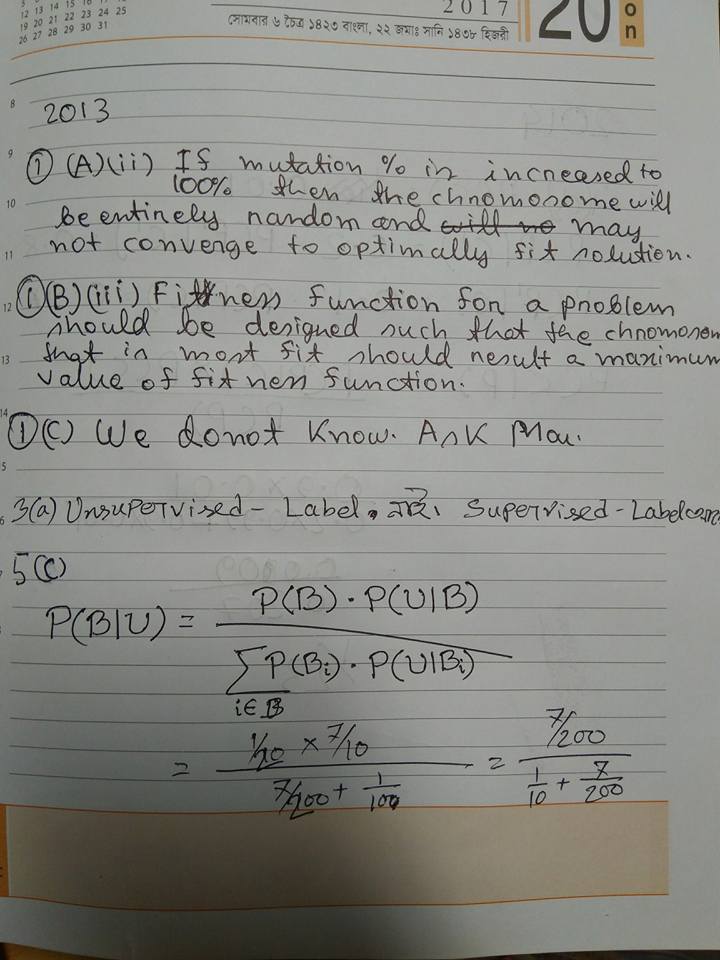 12 13 14 15 16 17 18
19 20 21 22 23 24 25
26 27 28 29 30 31
2017
সোমবার ৬ চৈত্র ১৪২৩ বাংলা, ২২ জমাঃ সানি ১৪৩৮ হিজরী
20
on
8
2013
9
① (A)(ii) If mutation % is increased to
100% then the chromosome will
10
be entirely random and will no may
11
not converge to optimally fit solution.
12
①(B)(iii) Fitness function for a problem
should be designed such that the chromosom
13
that is most fit should result a maximum
value of fitness function.
14
①(C) We donot Know. Ask Mou.
5
6
3(a) Unsupervised - Label নাই। Supervised - Label
5(C)
P(B|U) = P(B) · P(U|B)
∑ P(Bi) · P(U|Bi)
i∈B
= 1/20 × 7/10 = 7/200
7/200 + 1/100 1/10 + 7/200